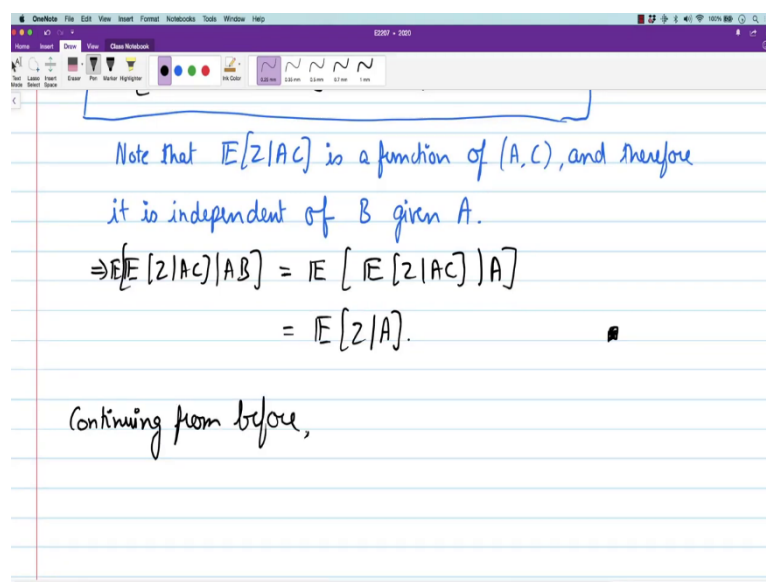 OneNote File Edit View Insert Format Notebooks Tools Window Help
100%
E2207 - 2020
Home Insert Draw View Class Notebook
Text Mode Lasso Select Insert Space Eraser Pen Marker Highlighter Ink Color 0.25 mm 0.35 mm 0.5 mm 0.7 mm 1 mm
Note that 𝔼[Z|AC] is a function of (A,C), and therefore
it is independent of B given A.
⇒𝔼[𝔼[Z|AC]|AB] = 𝔼[𝔼[Z|AC]|A]
= 𝔼[Z|A].
Continuing from before,